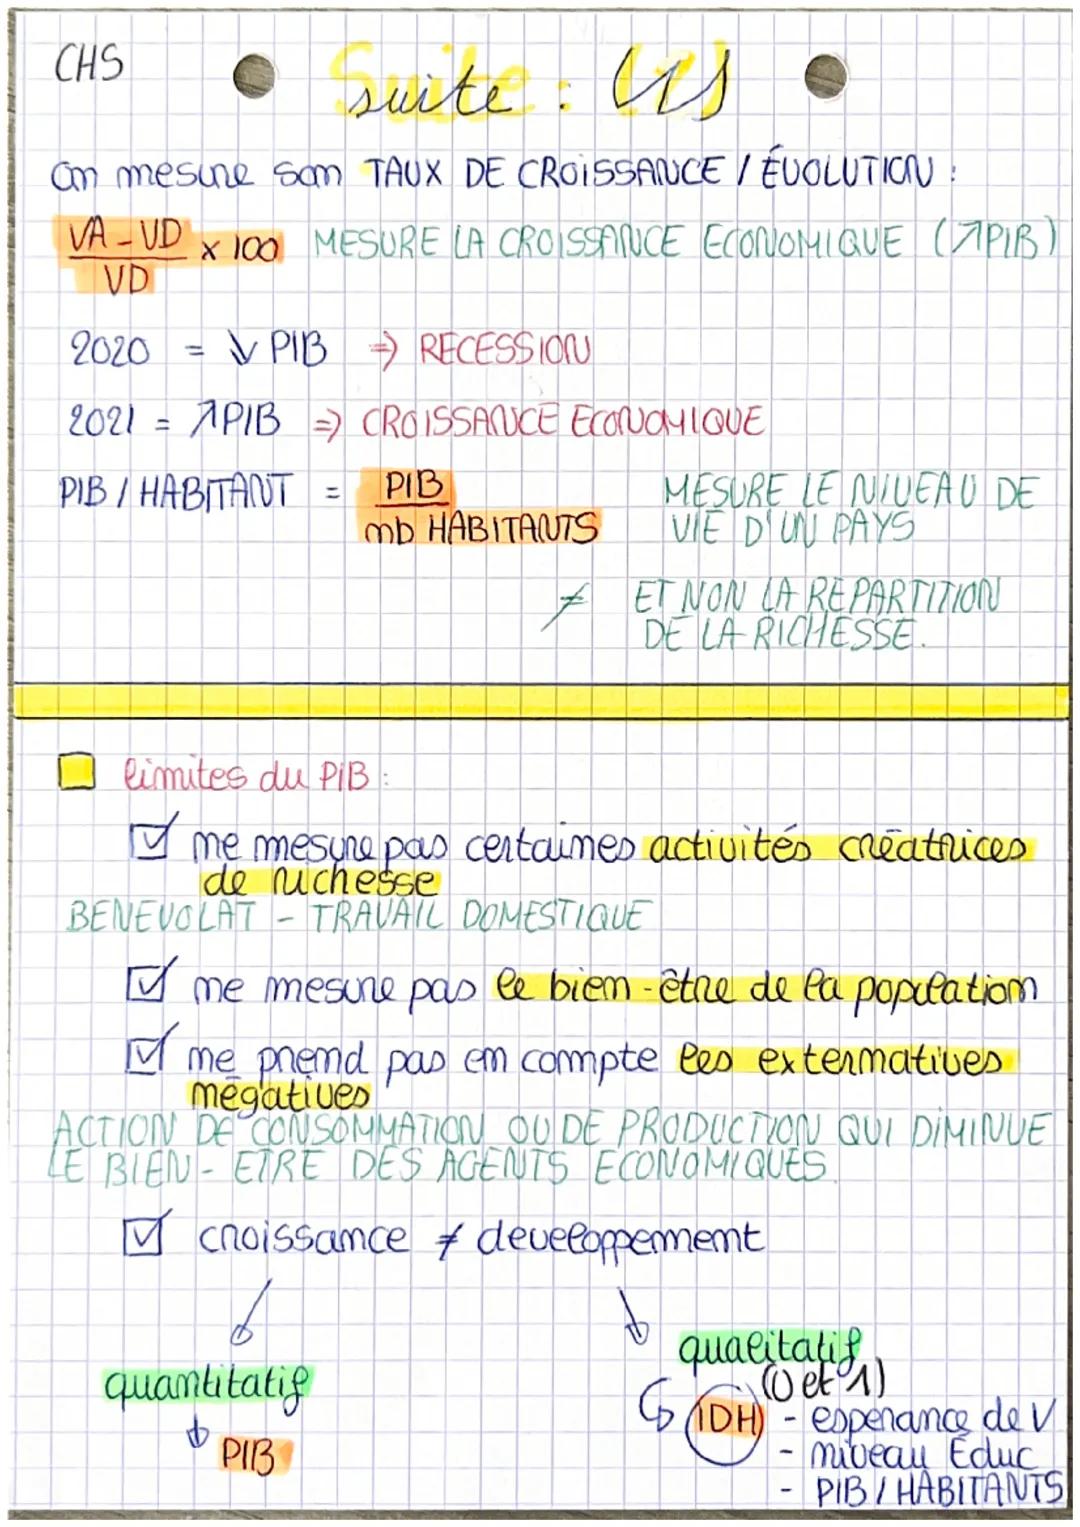 CHS
Suite : (1)
on mesure son TAUX DE CROISSANCE / ÉVOLUTION :
VA - VD
VD
x 100 MESURE LA CROISSANCE ECONOMIQUE (↗PIB)
2020 = ↘ PIB ⇒ RECESSION
2021 = ↗PIB ⇒ CROISSANCE ECONOMIQUE
PIB / HABITANT =
PIB
nb HABITANTS
MESURE LE NIVEAU DE
VIE D'UN PAYS
≠ ET NON LA REPARTITION
DE LA RICHESSE.
limites du PIB :
ne mesure pas certaines activités créatrices
de richesse
BENEVOLAT - TRAVAIL DOMESTIQUE
ne mesure pas le bien-être de la population
ne prend pas en compte les externatives
négatives
ACTION DE CONSOMMATION OU DE PRODUCTION QUI DIMINUE
LE BIEN-ETRE DES AGENTS ECONOMIQUES.
croissance ≠ developpement
quantitatif
PIB
qualitatif
(0 et 1)
IDH - esperance de V
- niveau Educ
- PIB / HABITANTS